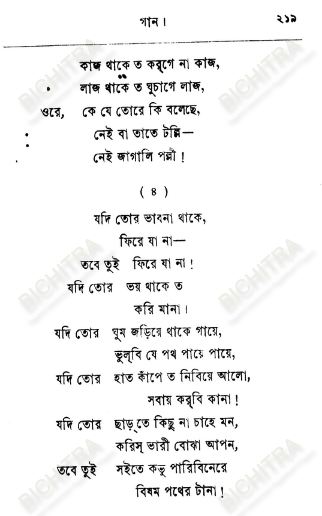 গান। ২১৯
কাজ থাকে ত করূগে না কাজ,
লাজ থাকে ত ঘুচাগে লাজ,
ওরে, কে যে তোরে কি বলেছে,
নেই বা তাতে টল্লি—
নেই জাগালি পল্লী!
( ৪ )
যদি তোর ভাবনা থাকে,
ফিরে যা না—
তবে তুই ফিরে যা না!
যদি তোর ভয় থাকে ত
করি মানা।
যদি তোর ঘুম জড়িরে থাকে গায়ে,
ভুল্‌বি যে পথ পায়ে পায়ে,
যদি তোর হাত কাঁপে ত নিবিয়ে আলো,
সবায় কর্‌বি কানা!
যদি তোর ছাড়্‌তে কিছু না চাহে মন,
করিস্ ভারী বোঝা আপন,
তবে তুই সইতে কভু পারিবিনেরে
বিষম পথের টানা!
BICHITRA